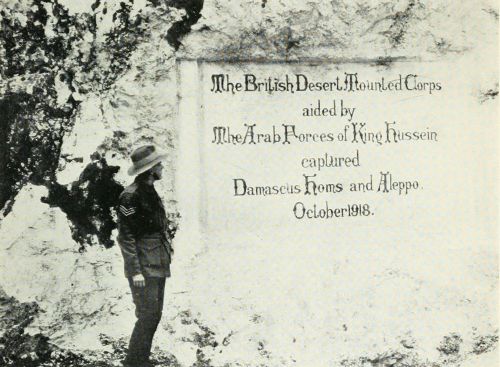 The British Desert Mounted Corps
aided by
The Arab Forces of King Hussein
captured
Damascus Homs and Aleppo.
October 1918.